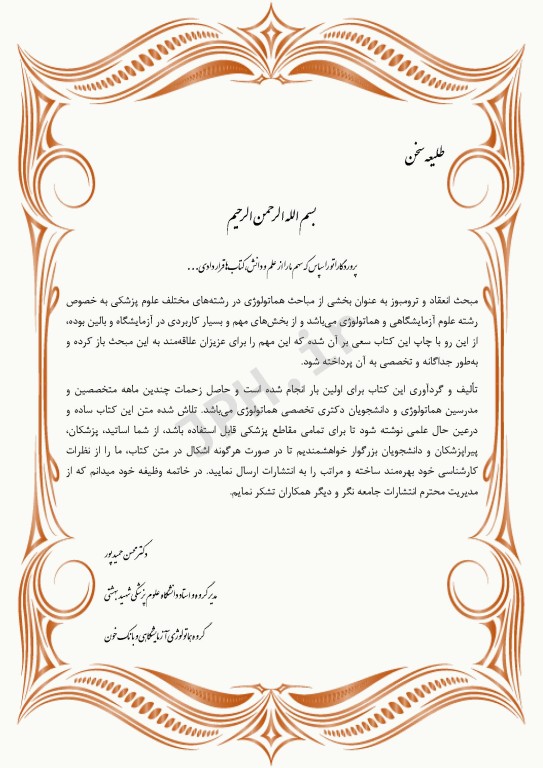 طلیعه سخن
بسم الله الرحمن الرحیم
پروردگارا تو را سپاس که سهم ما را از علم و دانش، کتاب‌ها قرار دادی...
مبحث انعقاد و ترومبوز به عنوان بخشی از مباحث هماتولوژی در رشته‌های مختلف علوم پزشکی به خصوص
رشته علوم آزمایشگاهی و هماتولوژی می‌باشد و از بخش‌های مهم و بسیار کاربردی در آزمایشگاه و بالین بوده،
از این رو با چاپ این کتاب سعی بر آن شده که این مهم را برای عزیزان علاقه‌مند به این مبحث باز کرده و
به‌طور جداگانه و تخصصی به آن پرداخته شود.
تألیف و گردآوری این کتاب برای اولین بار انجام شده است و حاصل زحمات چندین ماهه متخصصین و
مدرسین هماتولوژی و دانشجویان دکتری تخصصی هماتولوژی می‌باشد. تلاش شده متن این کتاب ساده و
درعین حال علمی نوشته شود تا برای تمامی مقاطع پزشکی قابل استفاده باشد، از شما اساتید، پزشکان،
پیراپزشکان و دانشجویان بزرگوار خواهشمندیم تا در صورت هرگونه اشکال در متن کتاب، ما را از نظرات
کارشناسی خود بهره‌مند ساخته و مراتب را به انتشارات ارسال نمایید. در خاتمه وظیفه خود میدانم که از
مدیریت محترم انتشارات جامعه نگر و دیگر همکاران تشکر نمایم.
دکتر محسن حمیدپور
مدیر گروه و استاد دانشگاه علوم پزشکی شهید بهشتی
گروه هماتولوژی آزمایشگاهی و بانک خون
JPH.ir